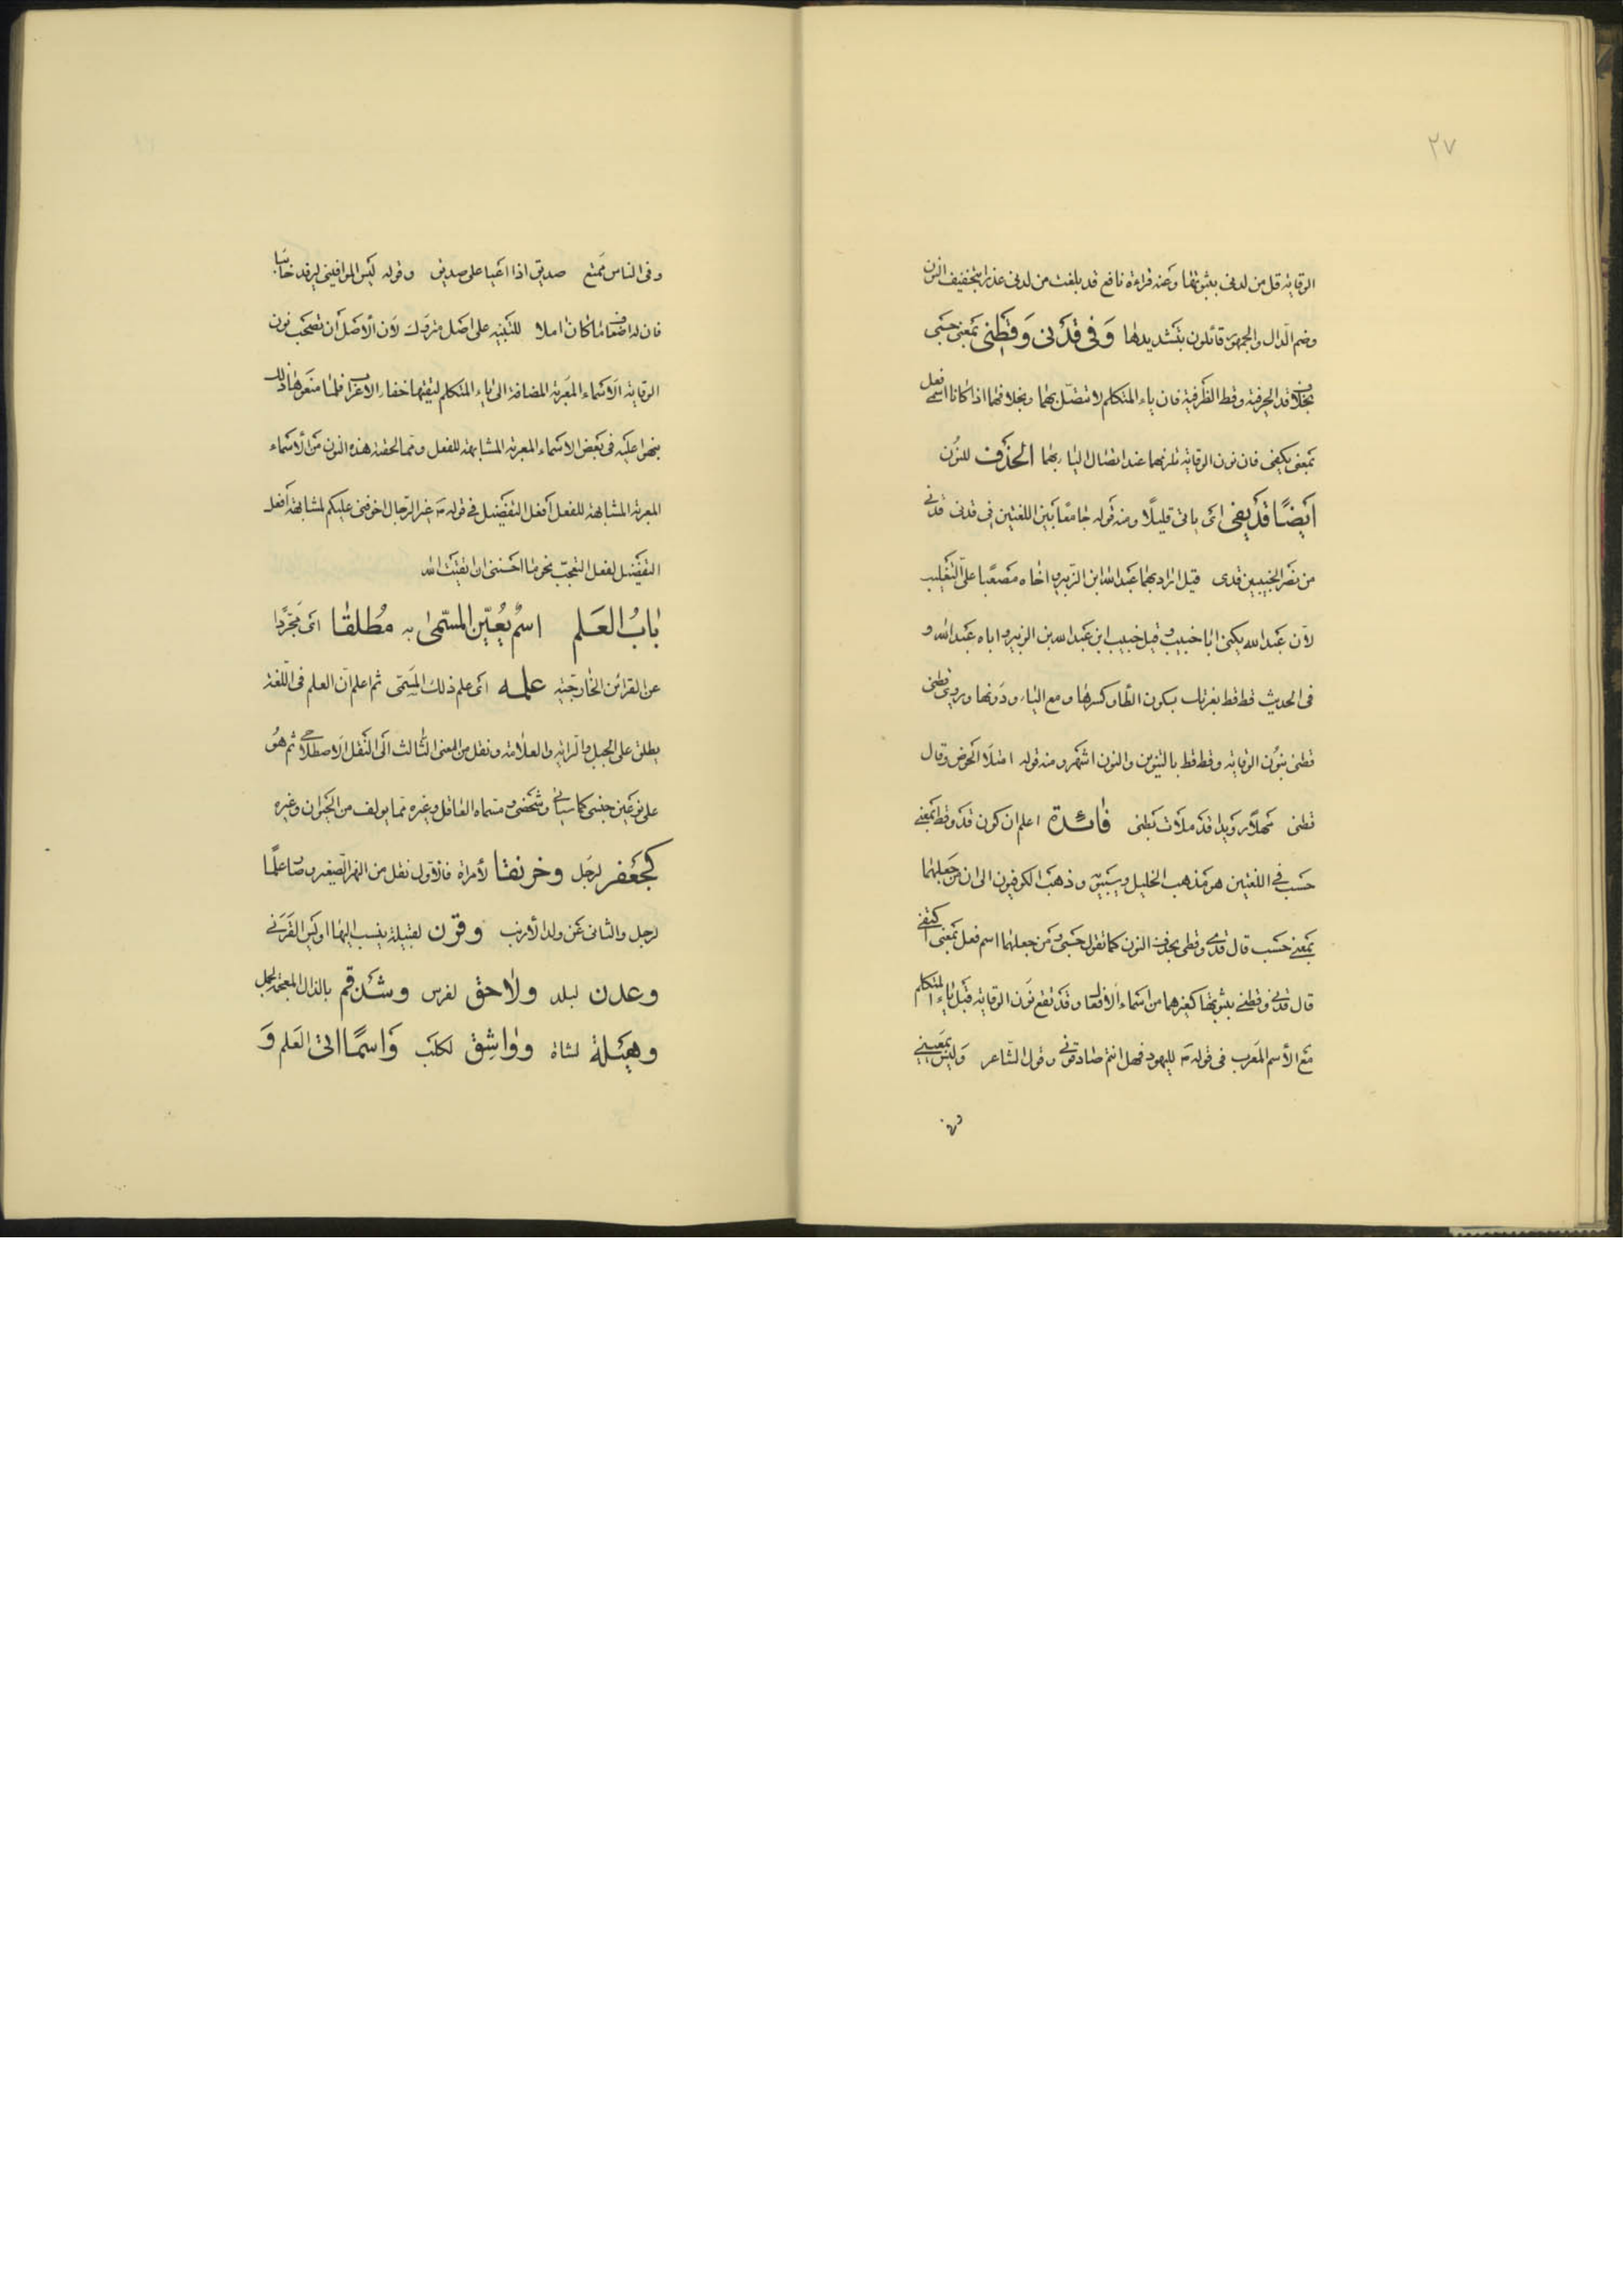 ٢٧
الوقاية قل من لدنى بثبوتها وعنه قراءة نافع قد بلغت من لدنى عذرا بتخفيف النون
وضم الدال والجمهور قائلون بتشديدها وَفى قَدْنى وَقَطْنى بمعنى حسبى
بخلاف قد الحرفية وقط الظرفية فان ياء المتكلم لا تتصل بهما وبخلافهما اذا كانا اسمى فعل
بمعنى يكفى فان نون الوقاية تلزمهما عند اتصال الياء بهما الحَذف للنون
اَيضًا قَد يفى اى ياتى قليلًا ومنه قوله جامعًا بين اللغتين فى قدنى قدنى
من نصر الخبيبين قدى قيل اراد بهما عبد الله ابن الزبير واخاه مصعبا على التغليب
لان عبد الله يكنى ابا خبيب وقيل خبيب ابن عبد الله بن الزبير واباه عبد الله و
فى الحديث قط قط بعزتك بسكون الطاء وكسرها ومع الياء ودونها ويروى قطنى
قطنى بنون الوقاية وقط قط بالتنوين والنون اشهر ومنه قوله امتلأ الحوض وقال
قطنى مهلًا رويدا قد ملأت بطنى فائدة اعلم ان كون قد وقط بمعنى
حسب فى اللغتين هو مذهب الخليل وسيبويه وذهب الكوفيون الى ان من جعلهما
بمعنى حسب قال قدى وقطى بحذف النون كما تقول حسبى ومن جعلهما اسم فعل بمعنى اكتفى
قال قدنى وقطنى بثبوتها كغيرهما من اسماء الافعال وقد تقع نون الوقاية قبل ياء المتكلم
مع الاسم المعرب فى قوله لليهود فهل انتم صادقونى وقول الشاعر وليس بمعيينى
وفى
وفى الناس ممتع صديق اذا اعيا على صديق وقوله ليس الموافينى ليرفد خائبا
فان له اضعاف ما كان املا للتنبيه على اصل متروك لان الاصل ان تصحب نون
الوقاية الاسماء المعربة المضافة الى ياء المتكلم لتقيها خفاء الاعراب فلما منعوها ذلك
نبهوا عليه فى بعض الاسماء المعربة المشابهة للفعل ومما لحقته هذه النون من الاسماء
المعربة المشابهة للفعل افعل التفضيل فى قوله غير الدجال اخوفنى عليكم لمشابهة افعل
التفضيل لفعل التعجب نحو ما احسننى ان اتقيت الله
بابُ العَلم اسمٌ يُعيّن المسمّى به مُطلقا اى مجردًا
عن القرائن الخارجية علمه اى علم ذلك المسمى ثم اعلم ان العلم فى اللغة
يطلق على الجبل والراية والعلامة ونقل من المعنى الثالث الى النقل الاصطلاحى ثم هو
على نوعين جنسى كما سياتى وشخصى ومسماه العاقل وغيره مما يولف من الحيوان وغيره
كجَعفر لرجل وخرنقا لامراة فالاول نقل من النهر الصغير وصار علمًا
لرجل والثانى عن ولد الارنب وقرن لقبيلة ينسب اليها اويس القرنى
وعدن لبلد ولاحق لفرس وشَذقم بالذال المعجمة لجمل
وهَيلة لشاة وواشِق لكلب وَاسمًا اتى العَلم وَ